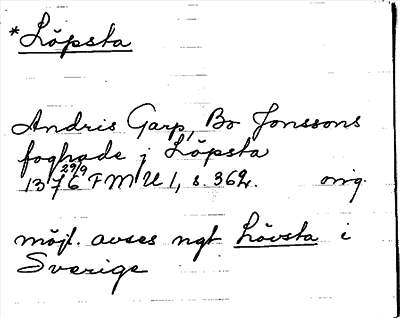 *Löpsta
Andris Garp, Bo Jonssons
foghade i Löpsta
29/9
1376 FMU I, s. 362. orig.
möjl. avses ngt Lövsta i
Sverige